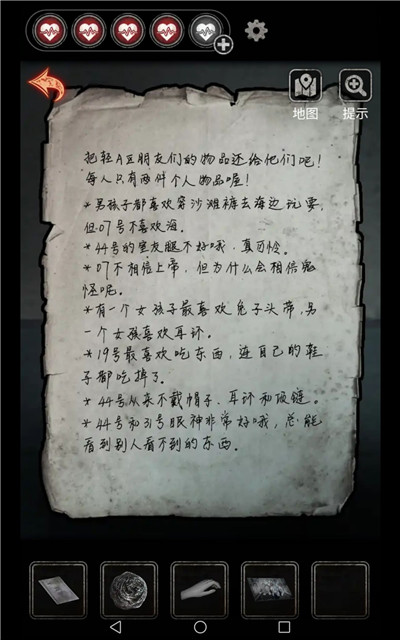 地图
提示
把轻A区朋友们的物品还给他们吧！
每人只有两件个人物品喔！
*男孩子都喜欢穿沙滩裤去海边玩耍，
但07号不喜欢海。
*44号的室友腿不好哦，真可怜。
*07不相信上帝，但为什么会相信鬼
怪呢。
*有一个女孩子最喜欢兔子头带，另
一个女孩喜欢耳环。
*19号最喜欢吃东西，连自己的鞋
子都吃掉了。
*44号从来不戴帽子、耳环和项链。
*44号和31号眼神非常好哦，总能
看到别人看不到的东西。